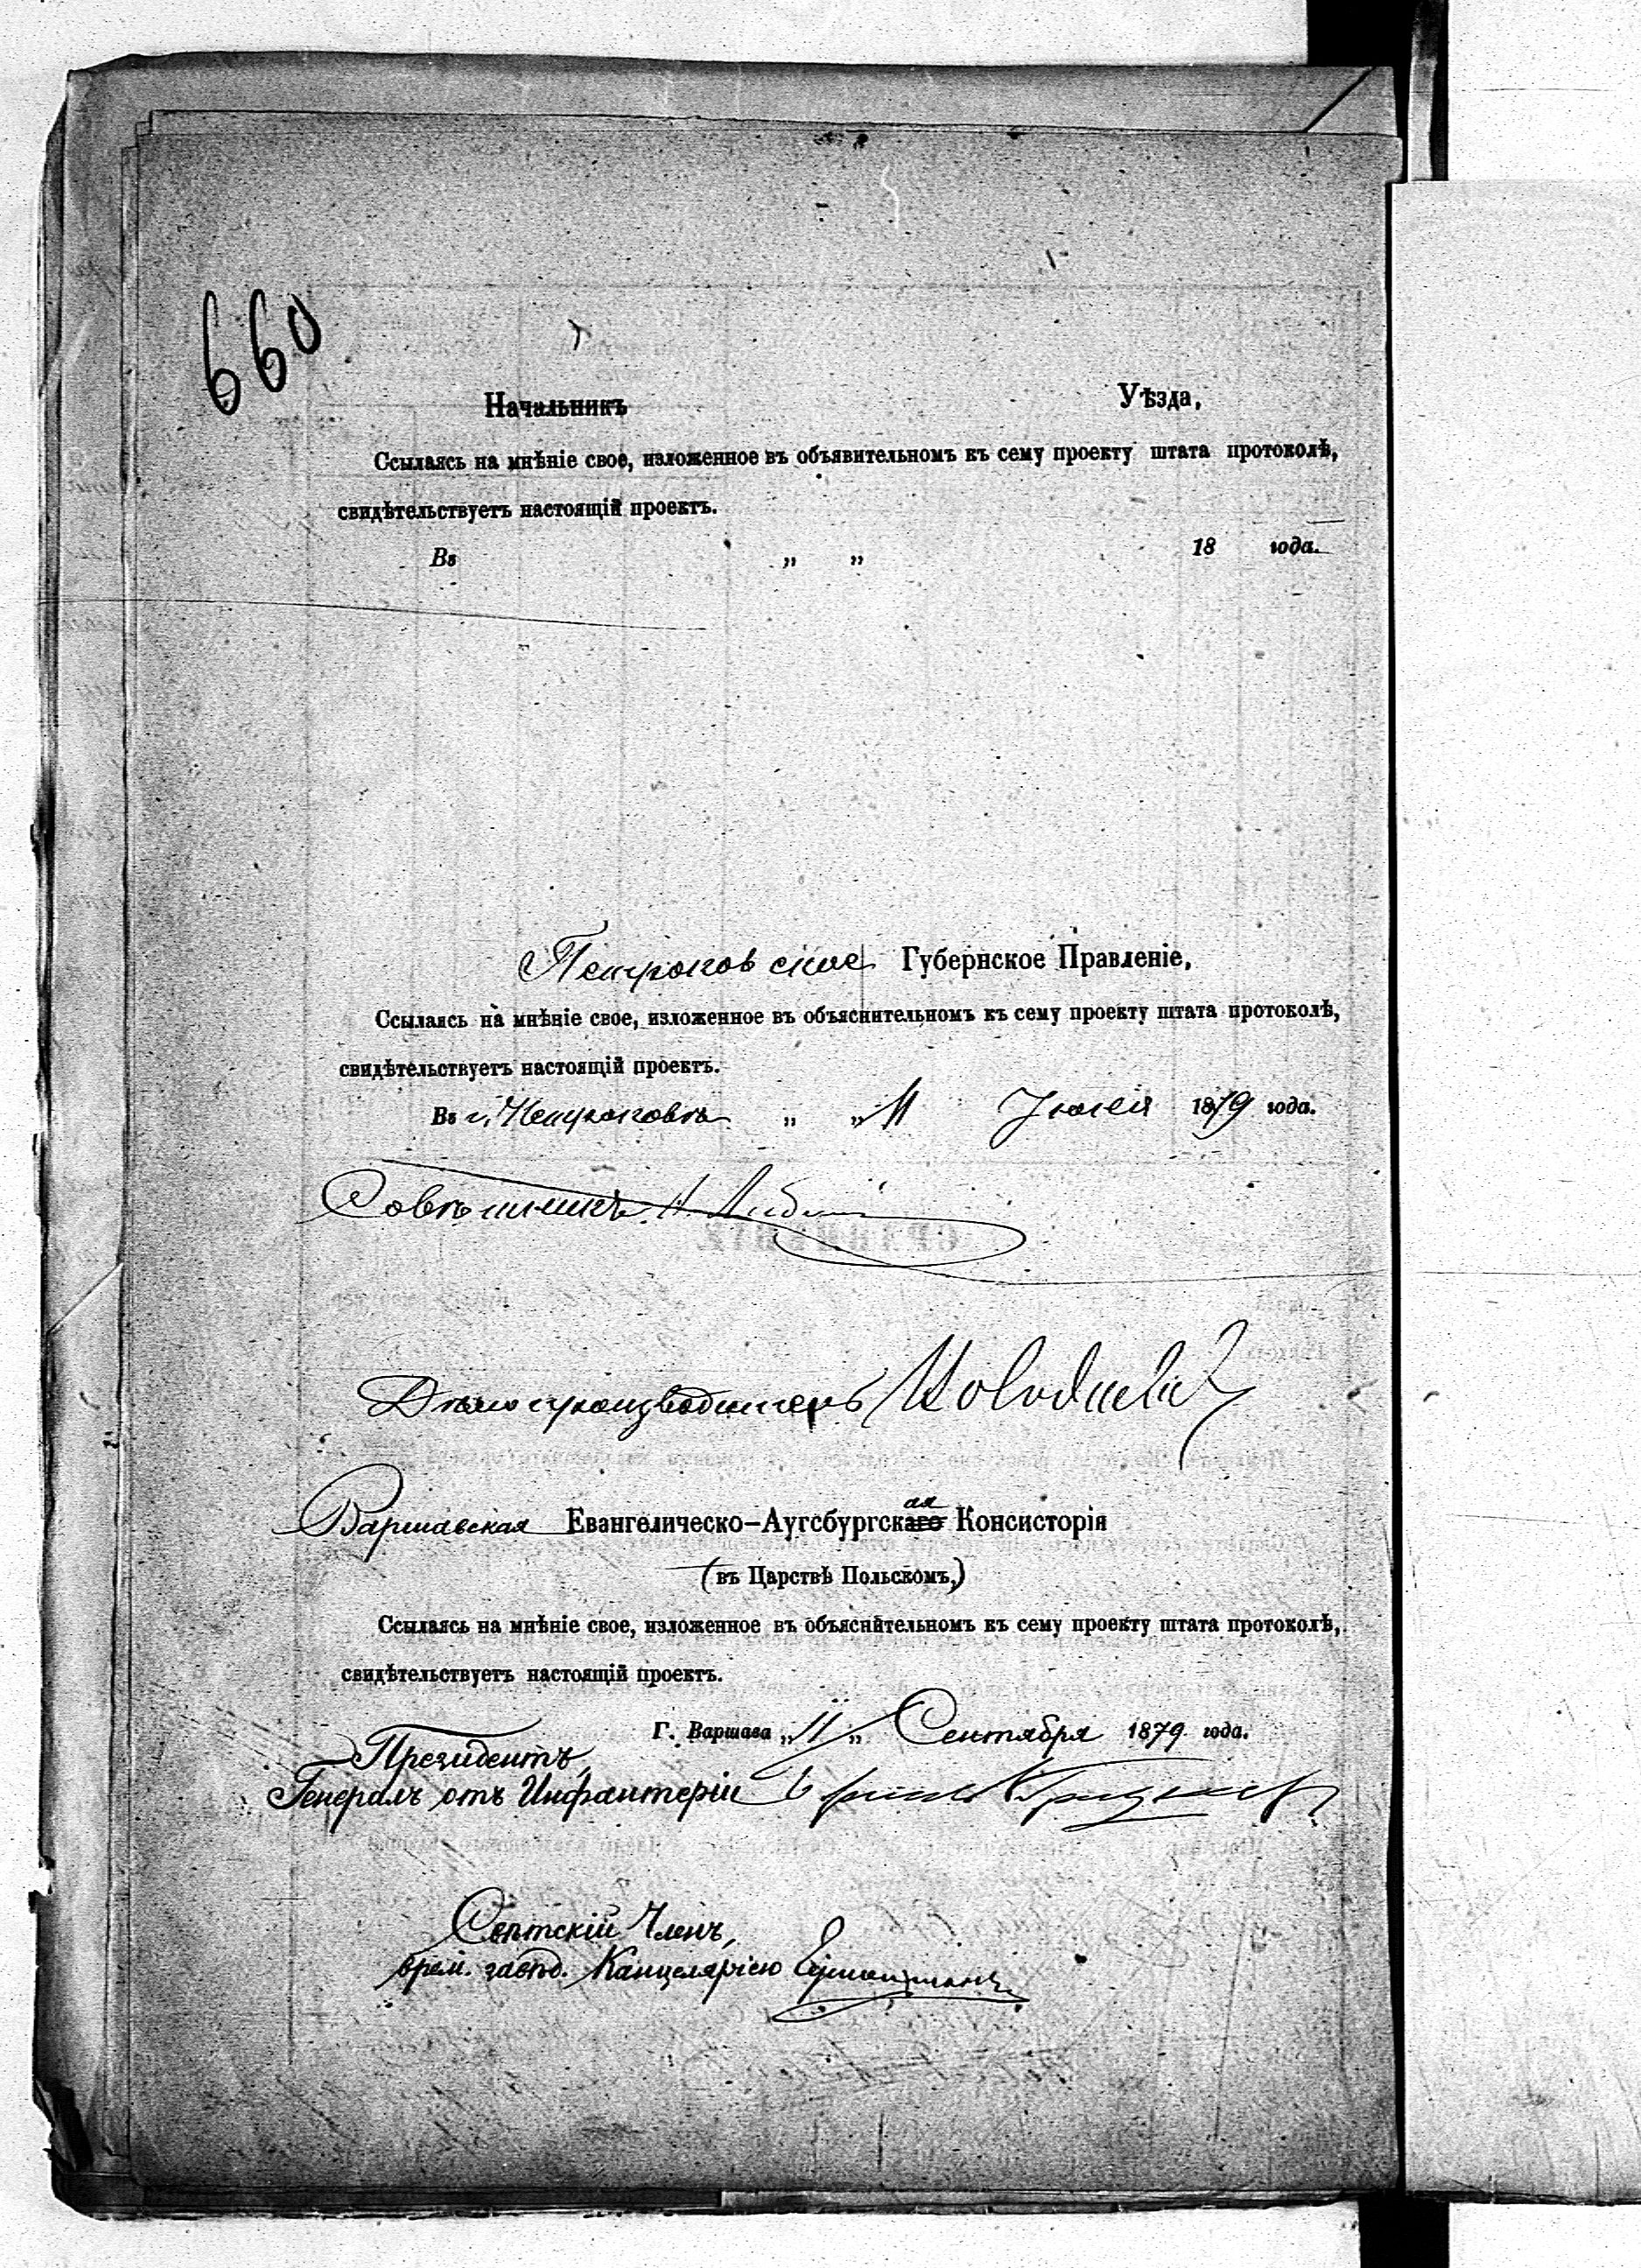 660
Начальникъ Уѣзда,
Ссылаясь на мнѣніе свое, изложенное въ объявительномъ къ сему проекту штата протоколѣ,
свидѣтельствуетъ настоящій проектъ.
Въ „ „ 18 года.
Петроковское Губернское Правленіе,
Ссылаясь на мнѣніе свое, изложенное въ объяснительномъ къ сему проекту штата протоколѣ,
свидѣтельствуетъ настоящій проектъ.
Въ г. Петроковѣ „ „ 11 1879 года.
Совѣтникъ
Дѣлопроизводитель
Варшавская Евангелическо-Аугсбургскаго ая Консисторія
(въ Царствѣ Польскомъ,)
Ссылаясь на мнѣніе свое, изложенное въ объяснительномъ къ сему проекту штата протоколѣ,
свидѣтельствуетъ настоящій проектъ.
Г. Варшава „11„ Сентября 1879 года.
Президентъ,
Генералъ отъ Инфантеріи
Свѣтскій Членъ,
врем. завѣд. Канцеляріею